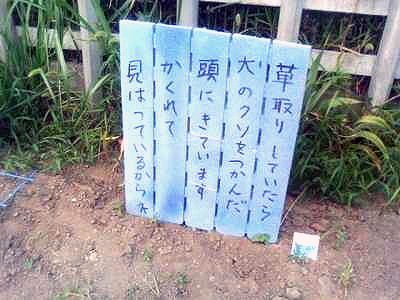 草取りしていたら
犬のクソをつかんだ
頭にきています
かくれて
見はっているからネ